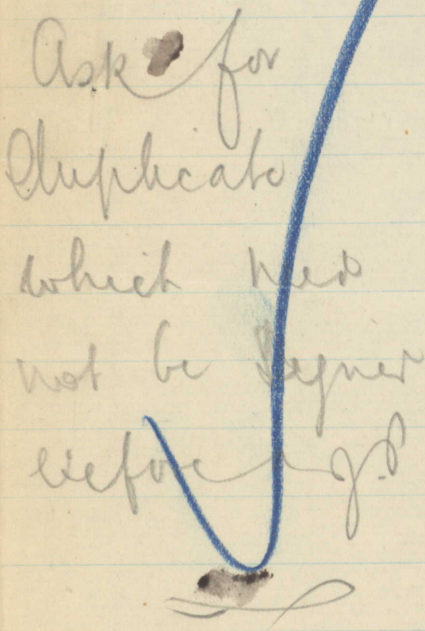 Ask for
Duplicate
which need
not be Signed
before J.P